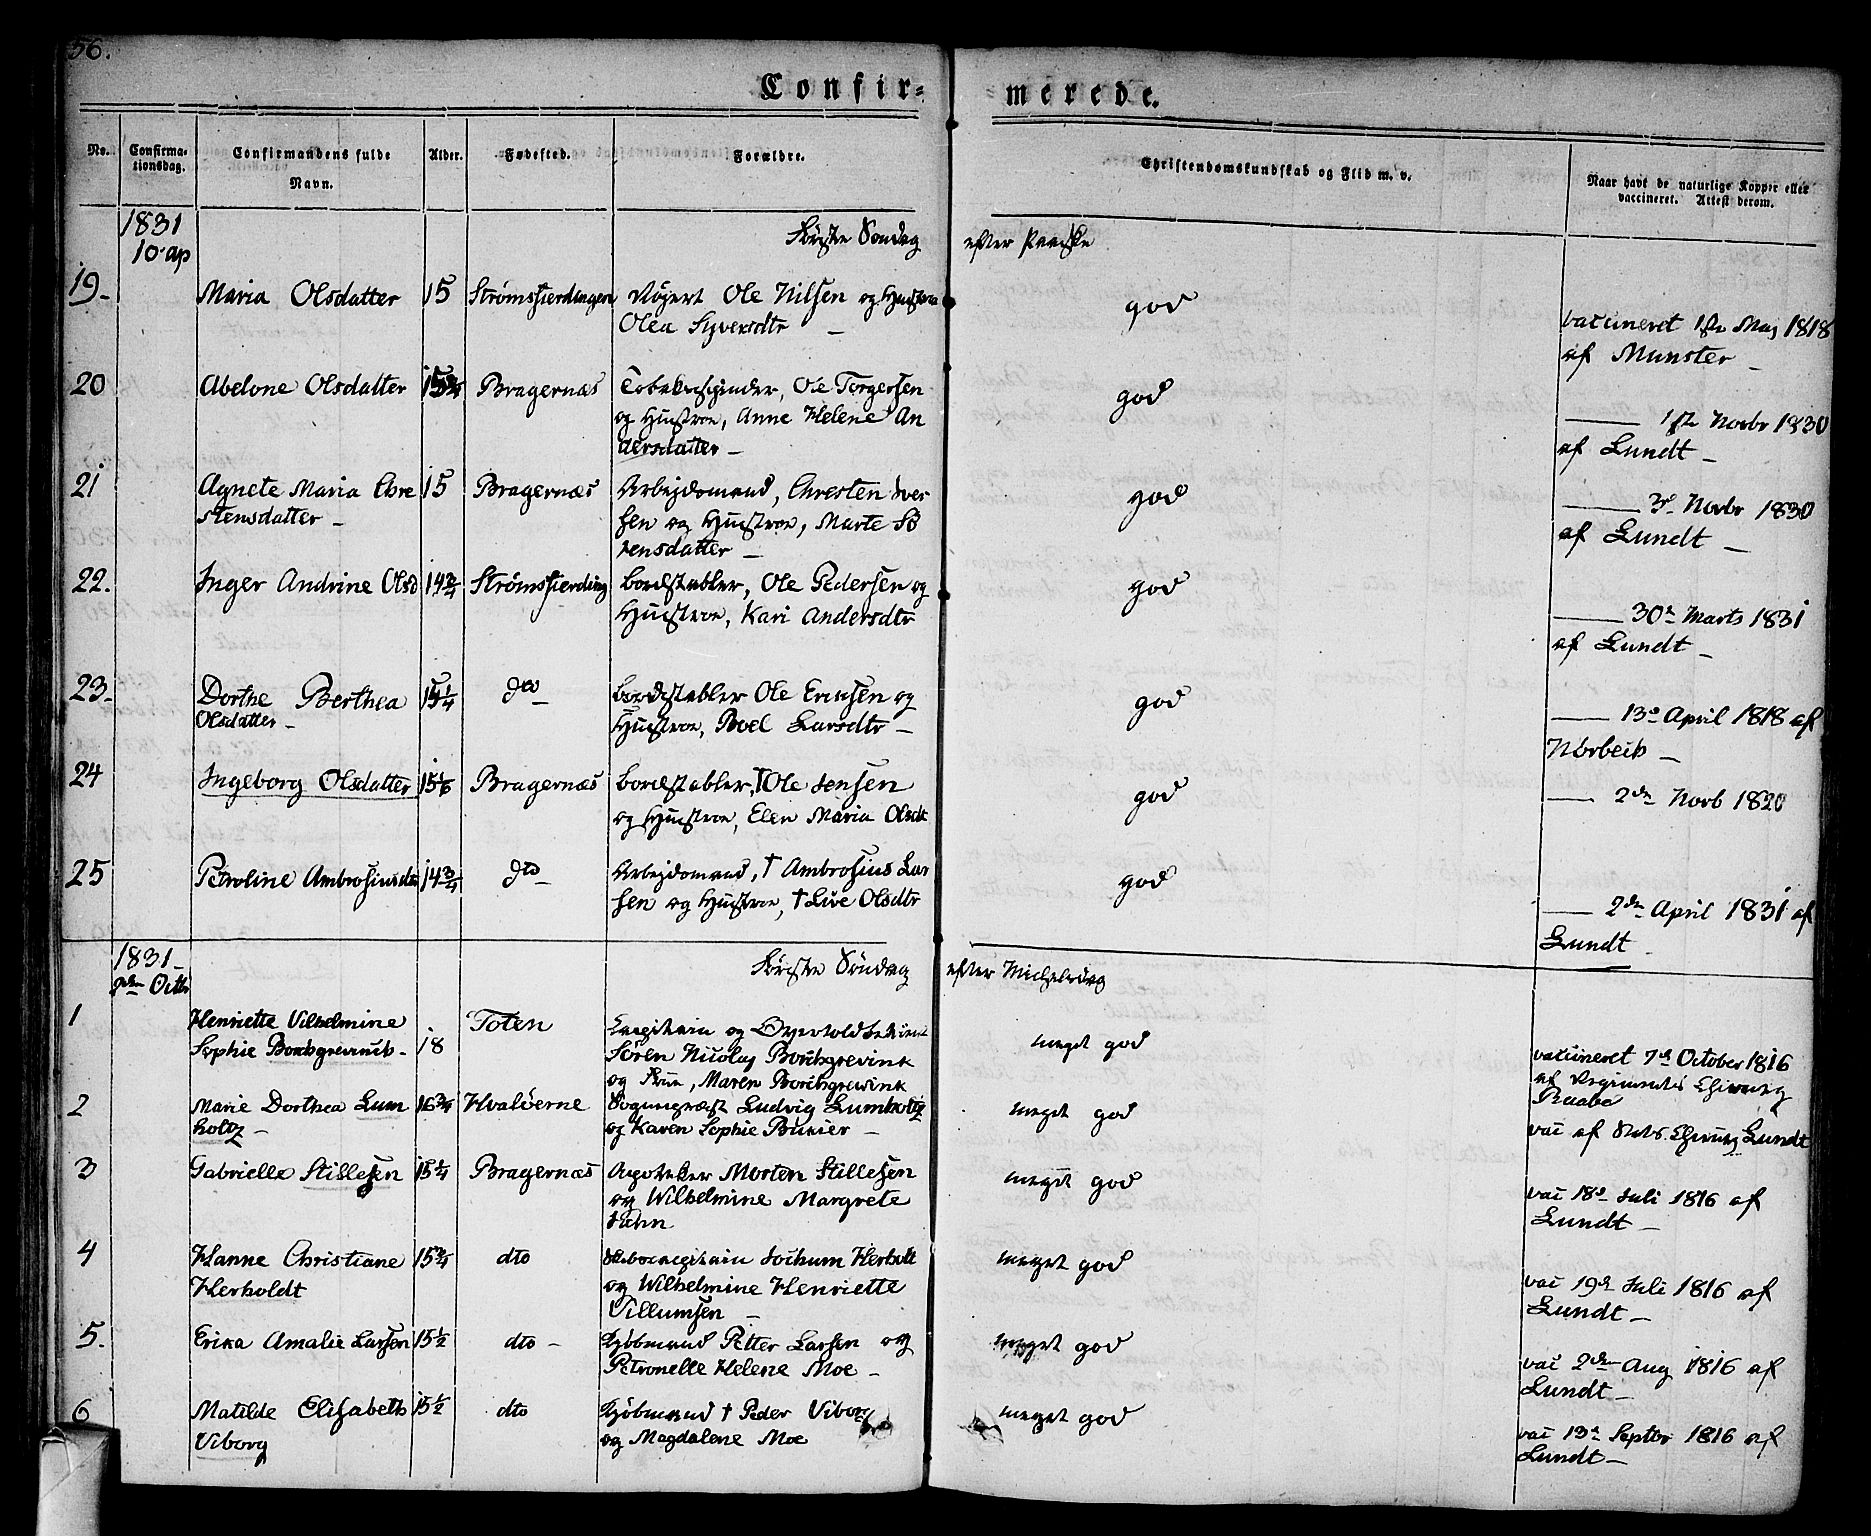 56.
Confir=
merede.
No. Confirma-tionsdag. Confirmandens fulde Navn. Alder. Fødested. Forældre. Christendomskundskab og Flid m. v. Naar havt de naturlige Kopper eller vaccineret. Attest derom.
1831
10 ap
Første Søndag efter Paaske
19. Maria Olsdatter 15 Strømsfierdingen Ole Nilsen og Hustroe god vaccineret 1ste Maj 1818
Olea Syversdtr — af Munster —
20 Abelone Olsdatter Bragernæs Tobakspinder, Ole Torgersen god — 1ste Novbr 1830
og Hustroe, Anne Helene An af Lundt —
dersdatter —
21 Agnete Maria Chre 15 Bragernæs Arbejdsmand, Chresten Iver god — 3d Novbr 1830
stensdatter — sen og Hustroe, Marte Sö af Lundt —
rensdatter —
22. Inger Andrine Olsd 14 3/4 Strømsfierding Bordstabler, Ole Pedersen og god — 30te Marts 1831
Hustroe, Kari Andersdtr af Lundt —
23. Dorthe Berthea 15 1/4 dto — Bordstabler Ole Ericksen og god — 13de April 1818 af
Olsdatter — Hustroe, Boel Larsdtr — Nörbeck —
24 Ingeborg Olsdatter 15 1/6 Bragernæs Bordstabler, † Ole Jensen god — 2den Novb 1820
og Hustroe, Elen Maria Olsdt
25 Petroline Ambrosiusdtr 14 3/4 dto — Arbejdsmand, † Ambrosius Lar god — 2den April 1831 af
sen og Hustroe, † Live Olsdtr Lundt —
1831 —
2den Octb
Første Søndag efter Michelsdag
1 Henriette Vilhelmine 18 Toten Capitain og meget god vaccineret 7de October 1816
Sophie Borchgrevinck — Sören Nicolay Borchgrevink af Regiments Chirurg
og Frue, Maren Borchgrevink Raabe
2 Marie Dorthea Lum 16 3/4 Hvalöerne Sognepræst Ludvig Lumholtz meget god vac af Chirurg Lundt
holtz — og Karen Sophie Bukier —
3 Gabrielle Stillesen 15 1/4 Bragernæs Apoteker Morten Stillesen meget god vac 18de Juli 1816 af
og Wilhelmine Margrete Lundt —
Juhn
4 Hanne Christiane 15 3/4 dto Jochum Herholt meget god vac 19de Juli 1816 af
Herholdt og Wilhelmine Henriette Lundt —
Villumsen —
5. Erika Amalie Larsen 15 1/2 dto — Kjöbmand Petter Larsen og meget god vac 2den Aug 1816 af
Petronelle Helene Moe — Lundt —
6 Matilde Elisabeth 15 1/2 dto Kjöbmand † Peder Viborg meget god vac 13de Septbr 1816 af
Viborg og Magdalene Moe Lundt —